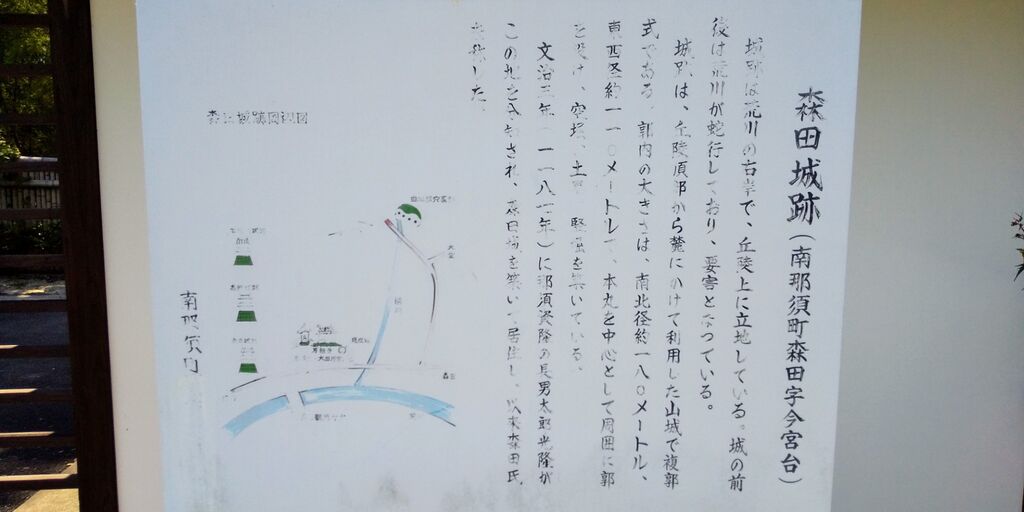 森田城跡(南那須町森田字今宮台)
城跡は荒川の右岸で、丘陵上に立地している。城の前
後は荒川が蛇行しており、要害となっている。
城跡は、丘陵頂部から麓にかけて利用した山城で複郭
式である。郭内の大きさは、南北径約一八〇メートル、
東西径約一一〇メートルで、本丸を中心として周囲に郭
を設け、空堀、土塁 堅固を築いている。
文治三年(一一八七年)に那須資隆の長男太郎光隆が
この地を分知され、森田城を築いて居住し、以来森田氏
を称した。
森田城跡周辺図
森田
南那須町